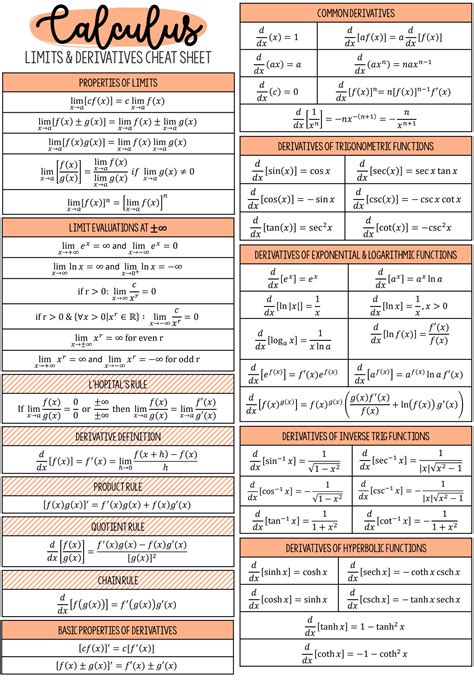 Calculus
LIMITS & DERIVATIVES CHEAT SHEET
PROPERTIES OF LIMITS
lim_{x→a}[cf(x)] = c lim_{x→a} f(x)
lim_{x→a}[f(x) ± g(x)] = lim_{x→a} f(x) ± lim_{x→a} g(x)
lim_{x→a}[f(x)g(x)] = lim_{x→a} f(x) lim_{x→a} g(x)
lim_{x→a}[f(x)/g(x)] = lim_{x→a} f(x) / lim_{x→a} g(x) if lim_{x→a} g(x) ≠ 0
lim_{x→a}[f(x)]^n = [lim_{x→a} f(x)]^n
LIMIT EVALUATIONS AT ±∞
lim_{x→∞} e^x = ∞ and lim_{x→−∞} e^x = 0
lim_{x→∞} ln x = ∞ and lim_{x→0⁺} ln x = −∞
if r > 0: lim_{x→∞} c/x^r = 0
if r > 0 & {∀x > 0|x^r ∈ ℝ}: lim_{x→−∞} c/x^r = 0
lim_{x→±∞} x^r = ∞ for even r
lim_{x→∞} x^r = ∞ and lim_{x→−∞} x^r = −∞ for odd r
L'HOPITAL'S RULE
If lim_{x→a} f(x)/g(x) = 0/0 or ±∞/±∞ then lim_{x→a} f(x)/g(x) = lim_{x→a} f′(x)/g′(x)
DERIVATIVE DEFINITION
d/dx[f(x)] = f′(x) = lim_{h→0} (f(x + h) − f(x))/h
PRODUCT RULE
[f(x)g(x)]′ = f′(x)g(x) + f(x)g′(x)
QUOTIENT RULE
d/dx[f(x)/g(x)] = (f′(x)g(x) − f(x)g′(x))/[g(x)]²
CHAIN RULE
d/dx[f(g(x))] = f′(g(x))g′(x)
BASIC PROPERTIES OF DERIVATIVES
[cf(x)]′ = c[f′(x)]
[f(x) ± g(x)]′ = f′(x) ± g′(x)
COMMON DERIVATIVES
d/dx(x) = 1 d/dx[af(x)] = a d/dx[f(x)]
d/dx(ax) = a d/dx(ax^n) = nax^{n−1}
d/dx(c) = 0 d/dx[f(x)]^n = n[f(x)]^{n−1}f′(x)
d/dx[1/x^n] = −nx^{−(n+1)} = −n/x^{n+1}
DERIVATIVES OF TRIGONOMETRIC FUNCTIONS
d/dx[sin(x)] = cos x d/dx[sec(x)] = sec x tan x
d/dx[cos(x)] = − sin x d/dx[csc(x)] = − csc x cot x
d/dx[tan(x)] = sec² x d/dx[cot(x)] = −csc² x
DERIVATIVES OF EXPONENTIAL & LOGARITHMIC FUNCTIONS
d/dx[e^x] = e^x d/dx[a^x] = a^x ln a
d/dx[ln |x|] = 1/x d/dx[ln x] = 1/x, x > 0
d/dx[log_a x] = 1/(x ln a) d/dx[ln f(x)] = f′(x)/f(x)
d/dx[e^{f(x)}] = f′(x)e^{f(x)} d/dx[a^{f(x)}] = a^{f(x)} ln a f′(x)
d/dx[f(x)^{g(x)}] = f(x)^{g(x)}(g(x)f′(x)/f(x) + ln(f(x)) g′(x))
DERIVATIVES OF INVERSE TRIG FUNCTIONS
d/dx[sin⁻¹ x] = 1/√(1 − x²) d/dx[sec⁻¹ x] = 1/(|x|√(x² − 1))
d/dx[cos⁻¹ x] = −1/√(1 − x²) d/dx[csc⁻¹ x] = −1/(|x|√(x² − 1))
d/dx[tan⁻¹ x] = 1/(1 + x²) d/dx[cot⁻¹ x] = −1/(1 + x²)
DERIVATIVES OF HYPERBOLIC FUNCTIONS
d/dx[sinh x] = cosh x d/dx[sech x] = − coth x csch x
d/dx[cosh x] = sinh x d/dx[csch x] = − coth x csch x
d/dx[tanh x] = 1 − tanh² x
d/dx[coth x] = 1 − coth² x